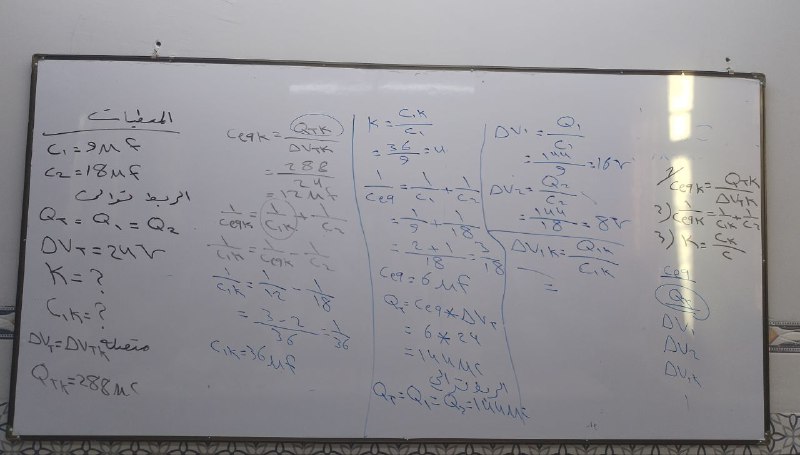 المعطيات
C₁=9μf
C₂=18μf
الربط توالي
Q_T=Q₁=Q₂
ΔV_T=24V
K=?
C₁K=?
ΔV_T=ΔV_TK متصلة
Q_TK=288μC
CeqK=Q_TK/ΔV_TK
=288/24
=12μf
1/CeqK=1/C₁K+1/C₂
1/C₁K=1/CeqK-1/C₂
1/C₁K=1/12-1/18
=3-2/36=1/36
C₁K=36μf
K=C₁K/C₁
=36/9=4
1/Ceq=1/C₁+1/C₂
=1/9+1/18
=2+1/18=3/18
Ceq=6μf
Q_T=Ceq*ΔV_T
=6*24
=144μC
الربط توالي
Q_T=Q₁=Q₂=144μC
ΔV₁=Q₁/C₁
=144/9=16V
ΔV₂=Q₂/C₂
=144/18=8V
ΔV₁K=Q₁K/C₁K
=
1/CeqK=Q_TK/ΔV_TK
2)1/CeqK=1/C₁K+1/C₂
3) K=CK/C
Ceq
Q_T
ΔV₁
ΔV₂
ΔV₁K